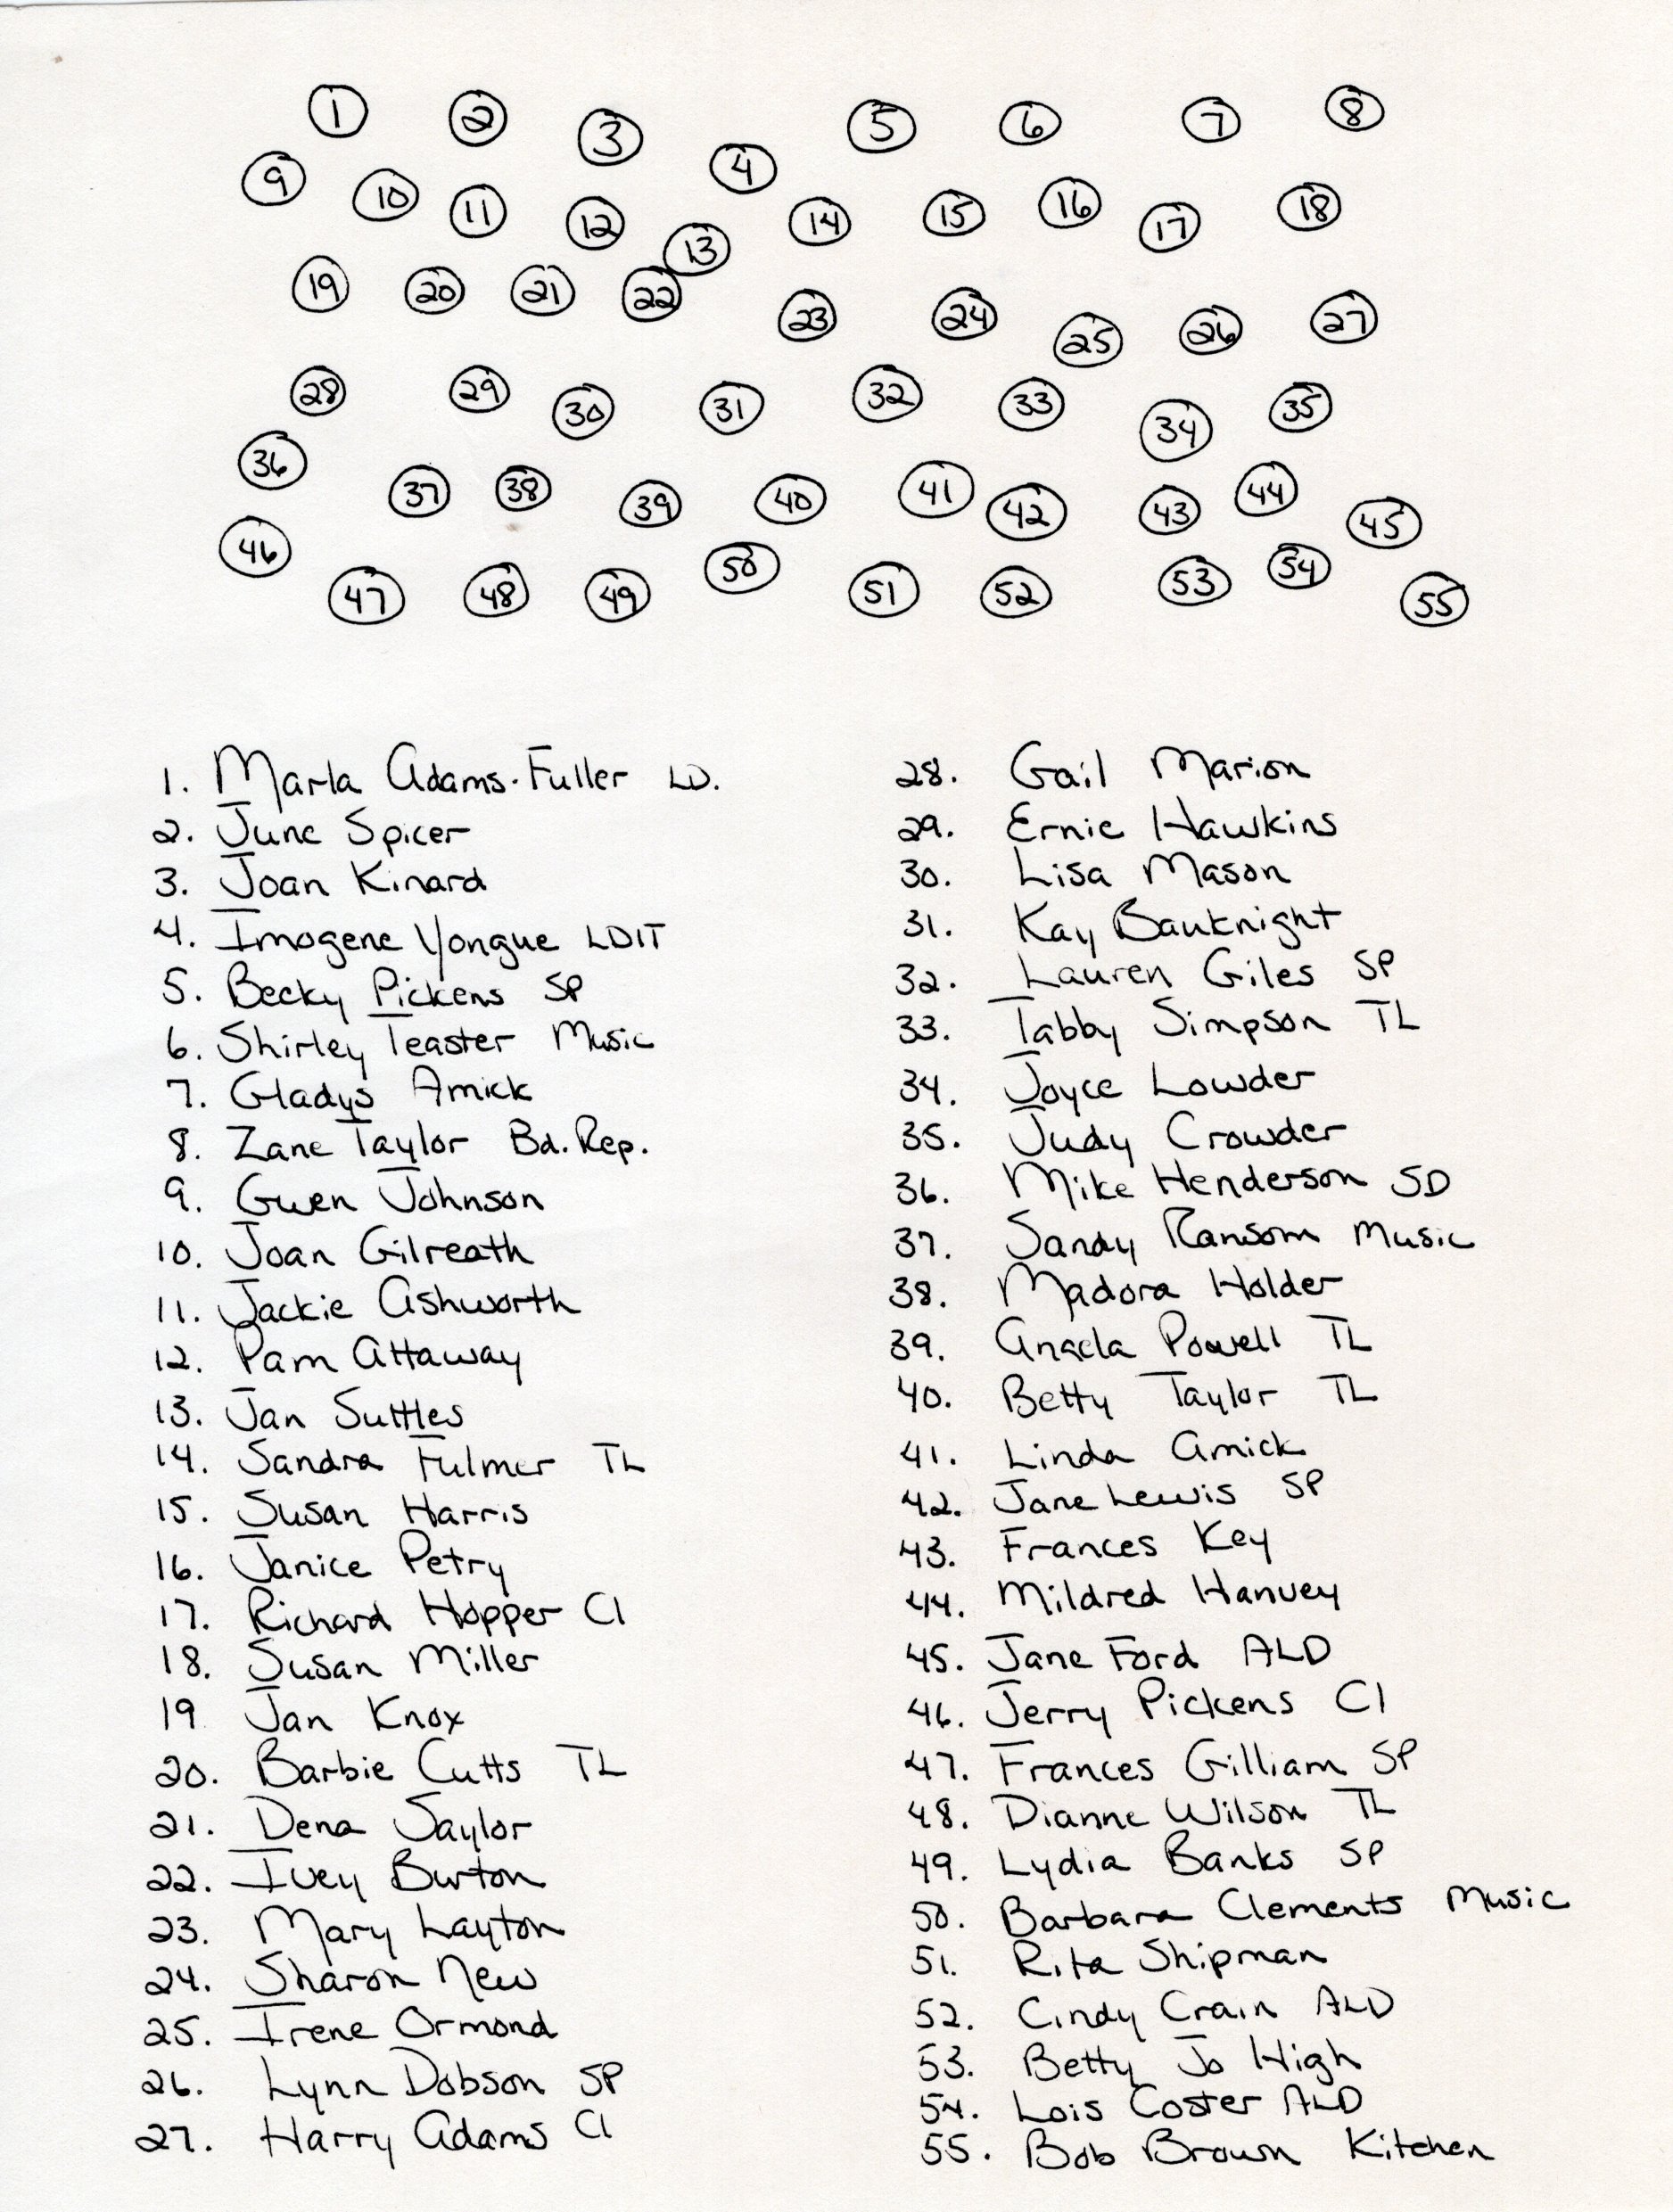 1 2 3 4 5 6 7 8
9 10 11 12 13 14 15 16 17 18
19 20 21 22 23 24 25 26 27
28 29 30 31 32 33 34 35
36 37 38 39 40 41 42 43 44 45
46 47 48 49 50 51 52 53 54 55
1. Marla Adams-Fuller LD.
2. June Spicer
3. Joan Kinard
4. Imogene Yongue LDIT
5. Becky Pickens SP
6. Shirley Teaster Music
7. Gladys Amick
8. Zane Taylor Bd. Rep.
9. Gwen Johnson
10. Joan Gilreath
11. Jackie Ashworth
12. Pam Attaway
13. Jan Suttles
14. Sandra Fulmer TL
15. Susan Harris
16. Janice Petry
17. Richard Hopper CI
18. Susan Miller
19 Jan Knox
20. Barbie Cutts TL
21. Dena Saylor
22. Ivey Burton
23. Mary Layton
24. Sharon New
25. Irene Ormond
26. Lynn Dobson SP
27. Harry Adams CI
28. Gail Marion
29. Ernie Hawkins
30. Lisa Mason
31. Kay Bauknight
32. Lauren Giles SP
33. Tabby Simpson TL
34. Joyce Lowder
35. Judy Crowder
36. Mike Henderson SD
37. Sandy Ransom Music
38. Madora Holder
39. Angela Powell TL
40. Betty Taylor TL
41. Linda Amick
42. Jane Lewis SP
43. Frances Key
44. Mildred Hanvey
45. Jane Ford ALD
46. Jerry Pickens CI
47. Frances Gilliam SP
48. Dianne Wilson TL
49. Lydia Banks SP
50. Barbara Clements Music
51. Rita Shipman
52. Cindy Crain ALD
53. Betty Jo High
54. Lois Coster ALD
55. Bob Brown Kitchen